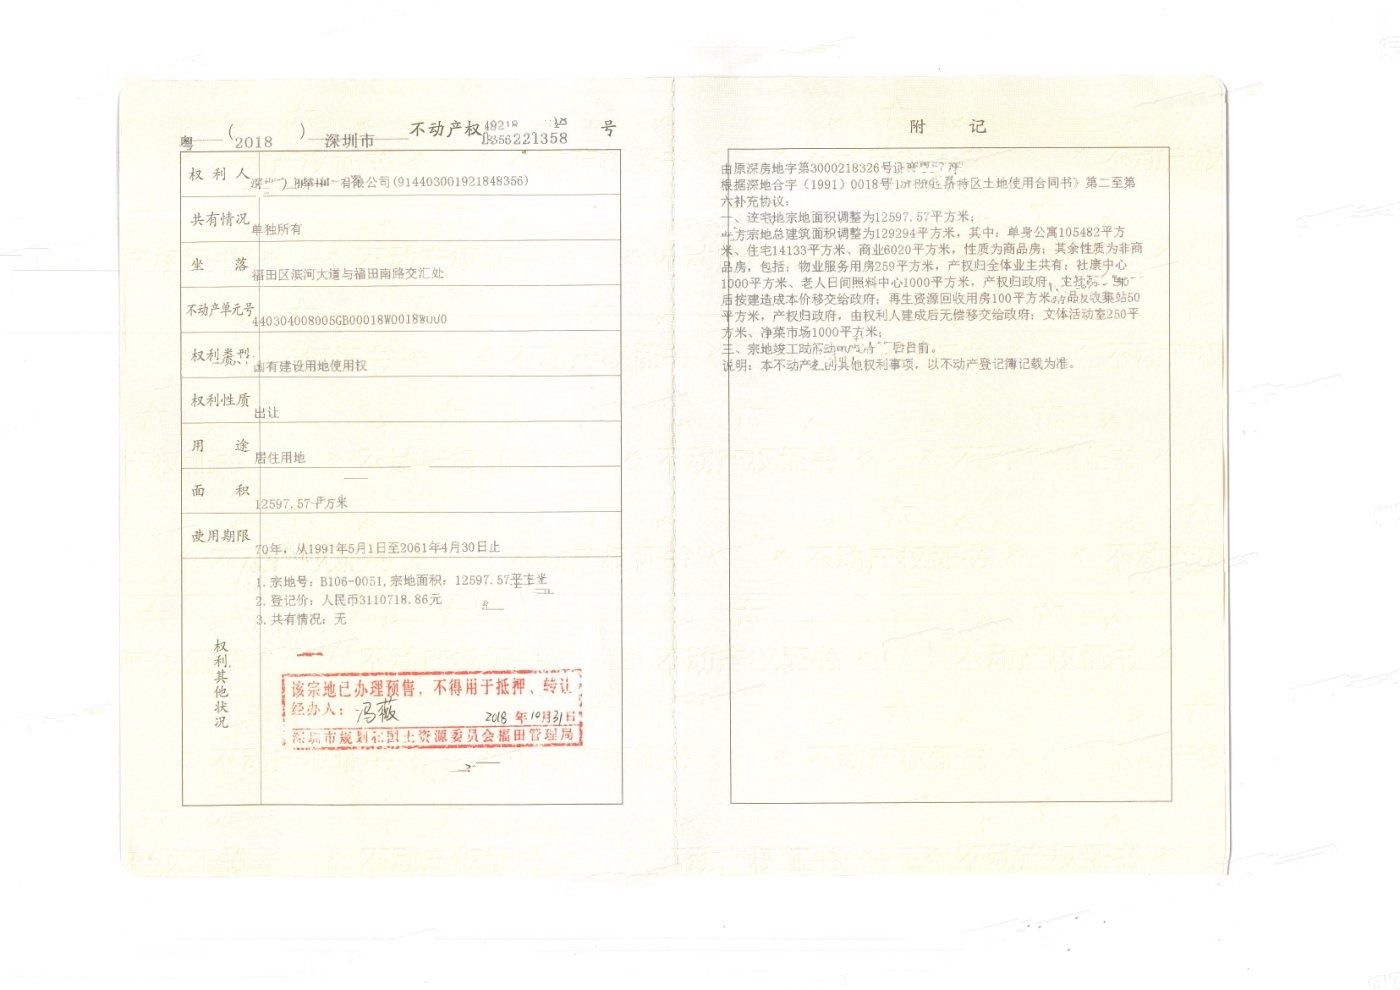 粤（2018）深圳市不动产权第 号
权利人 有限公司(914403001921848356)
共有情况 单独所有
坐落 福田区滨河大道与福田南路交汇处
不动产单元号 440304008005GB00018W0018W000
权利类型 国有建设用地使用权
权利性质 出让
用途 居住用地
面积 12597.57平方米
使用期限 70年，从1991年5月1日至2061年4月30日止
权利其他状况
1.宗地号：B106-0051,宗地面积：12597.57平方米
2.登记价：人民币3110718.86元
3.共有情况：无
该宗地已办理预售，不得用于抵押、转让
经办人：冯薇 2018年10月31日
深圳市规划和国土资源委员会福田管理局
附记
由原深房地字第3000218326号证
根据深地合字（1991）0018号 特区土地使用合同书》第二至第
六补充协议：
一、该宅地宗地面积调整为12597.57平方米；
宗地总建筑面积调整为129294平方米，其中：单身公寓105482平方
米、住宅14133平方米、商业6020平方米，性质为商品房；其余性质为非商
品房，包括：物业服务用房259平方米，产权归全体业主共有；社康中心
1000平方米、老人日间照料中心1000平方米，产权归政府，
后按建造成本价移交给政府；再生资源回收用房100平方米 收集站50
平方米，产权归政府，由权利人建成后无偿移交给政府；文体活动室250平
方米、净菜市场1000平方米；
三、宗地竣工
说明：本不动产 的其他权利事项，以不动产登记簿记载为准。